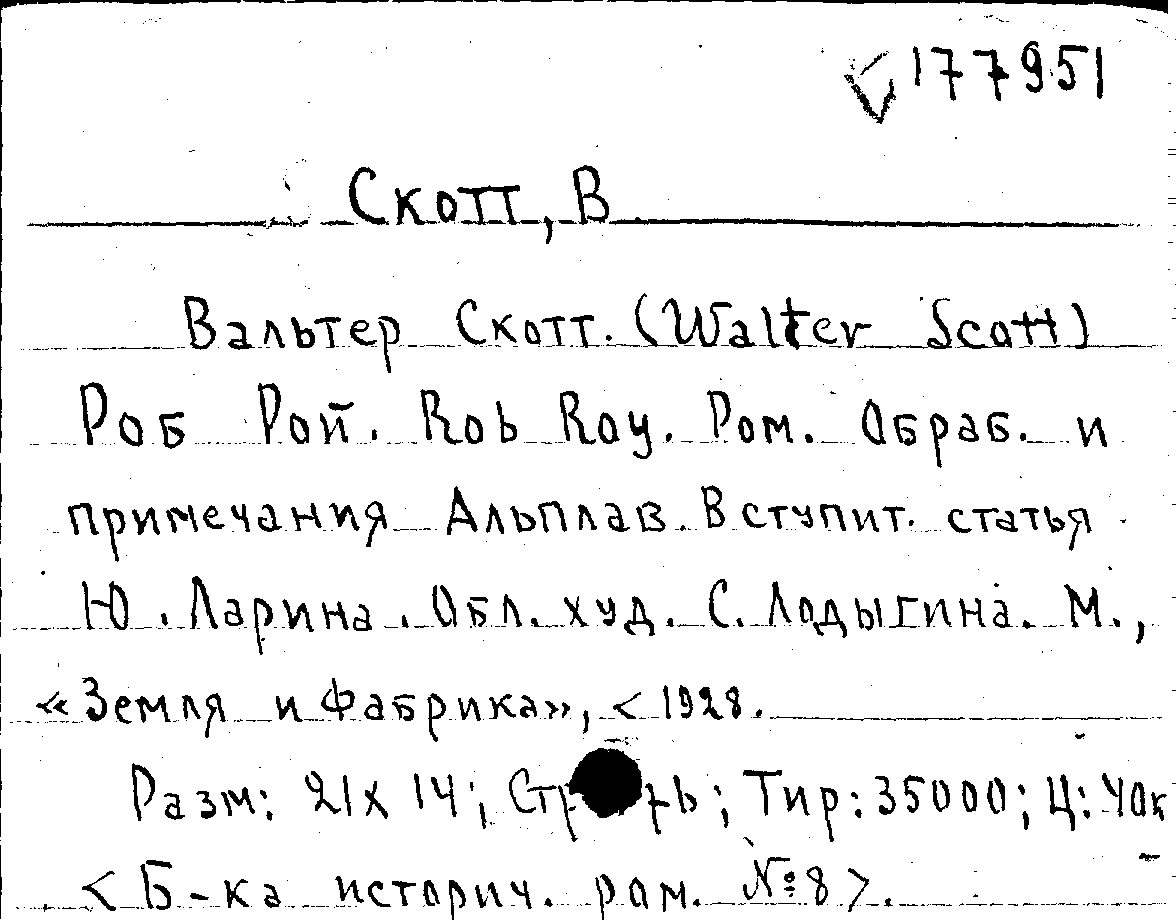 177951
Скотт, В
Вальтер Скотт. (Walter Scott)
Роб Рой. Rob Roy. Ром. Обраб. и
примечания Альплав. Вступит. статья
Ю. Ларина. Обл. худ. С. Лодыгина. М.,
«Земля и Фабрика», < 1928.
Разм: 21х14; Тир: 35000; Ц: 40к
< Б-ка историч. ром. №8 >.